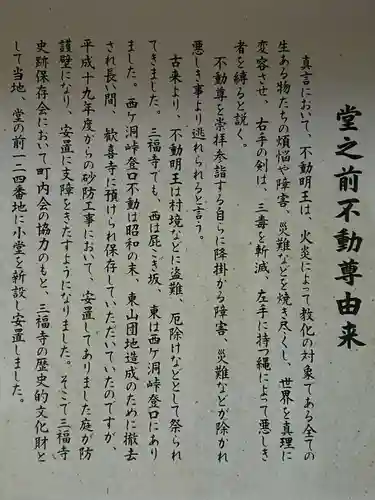 堂之前不動尊由来
真言において、不動明王は、火炎によって教化の対象である全ての
生ある物たちの煩悩や障害、災難などを焼き尽くし、世界を真理に
変容させ、右手の剣は、三毒を斬滅、左手に持つ縄によって悪しき
者を縛ると説く。
不動尊を崇拝参詣する自らに降掛かる障害、災難などが除かれ
悪しき事より逃れられると言う。
古来より、不動明王は村境などに盗難、厄除けなどとして祭られ
てきました。三福寺でも、西は屁こき坂、東は西ケ洞峠登口にあり
ました。西ケ洞峠登口不動は昭和の末、東山団地造成のために撤去
され長い間、歓喜寺に預けられ保存していただいていたのですが、
平成十九年度からの砂防工事において、安置してありました庭が防
護壁になり、安置に支障をきたすようになりました。そこで三福寺
史跡保存会において町内会の協力のもと、三福寺の歴史的文化財と
して当地、堂の前一二四番地に小堂を新設し安置しました。